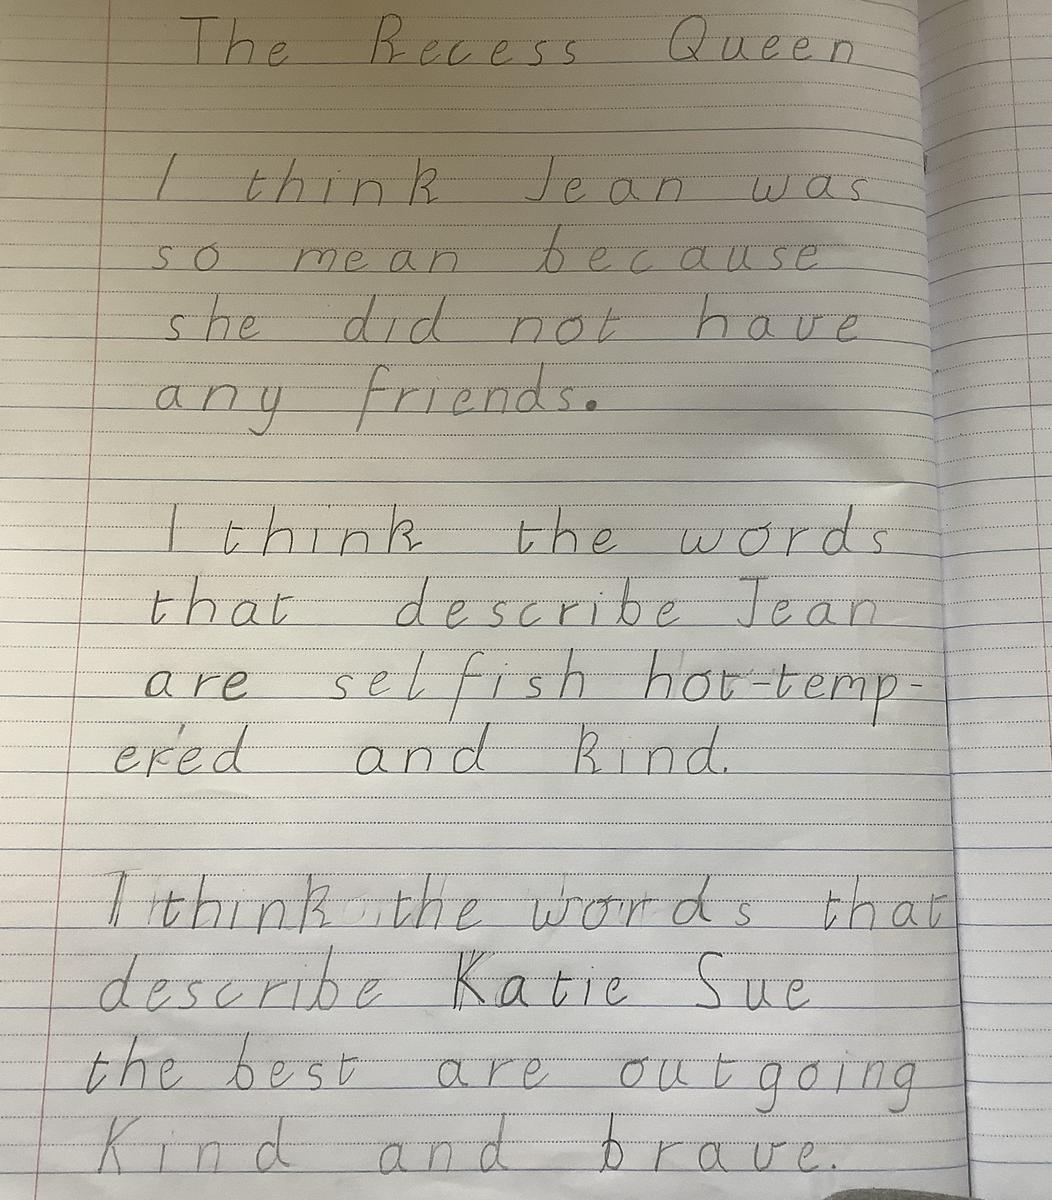 The Recess Queen
I think Jean was
so mean because
she did not have
any friends.
I think the words
that describe Jean
are selfish hot-temp-
ered and kind.
I think the words that
describe Katie Sue
the best are outgoing
Kind and brave.